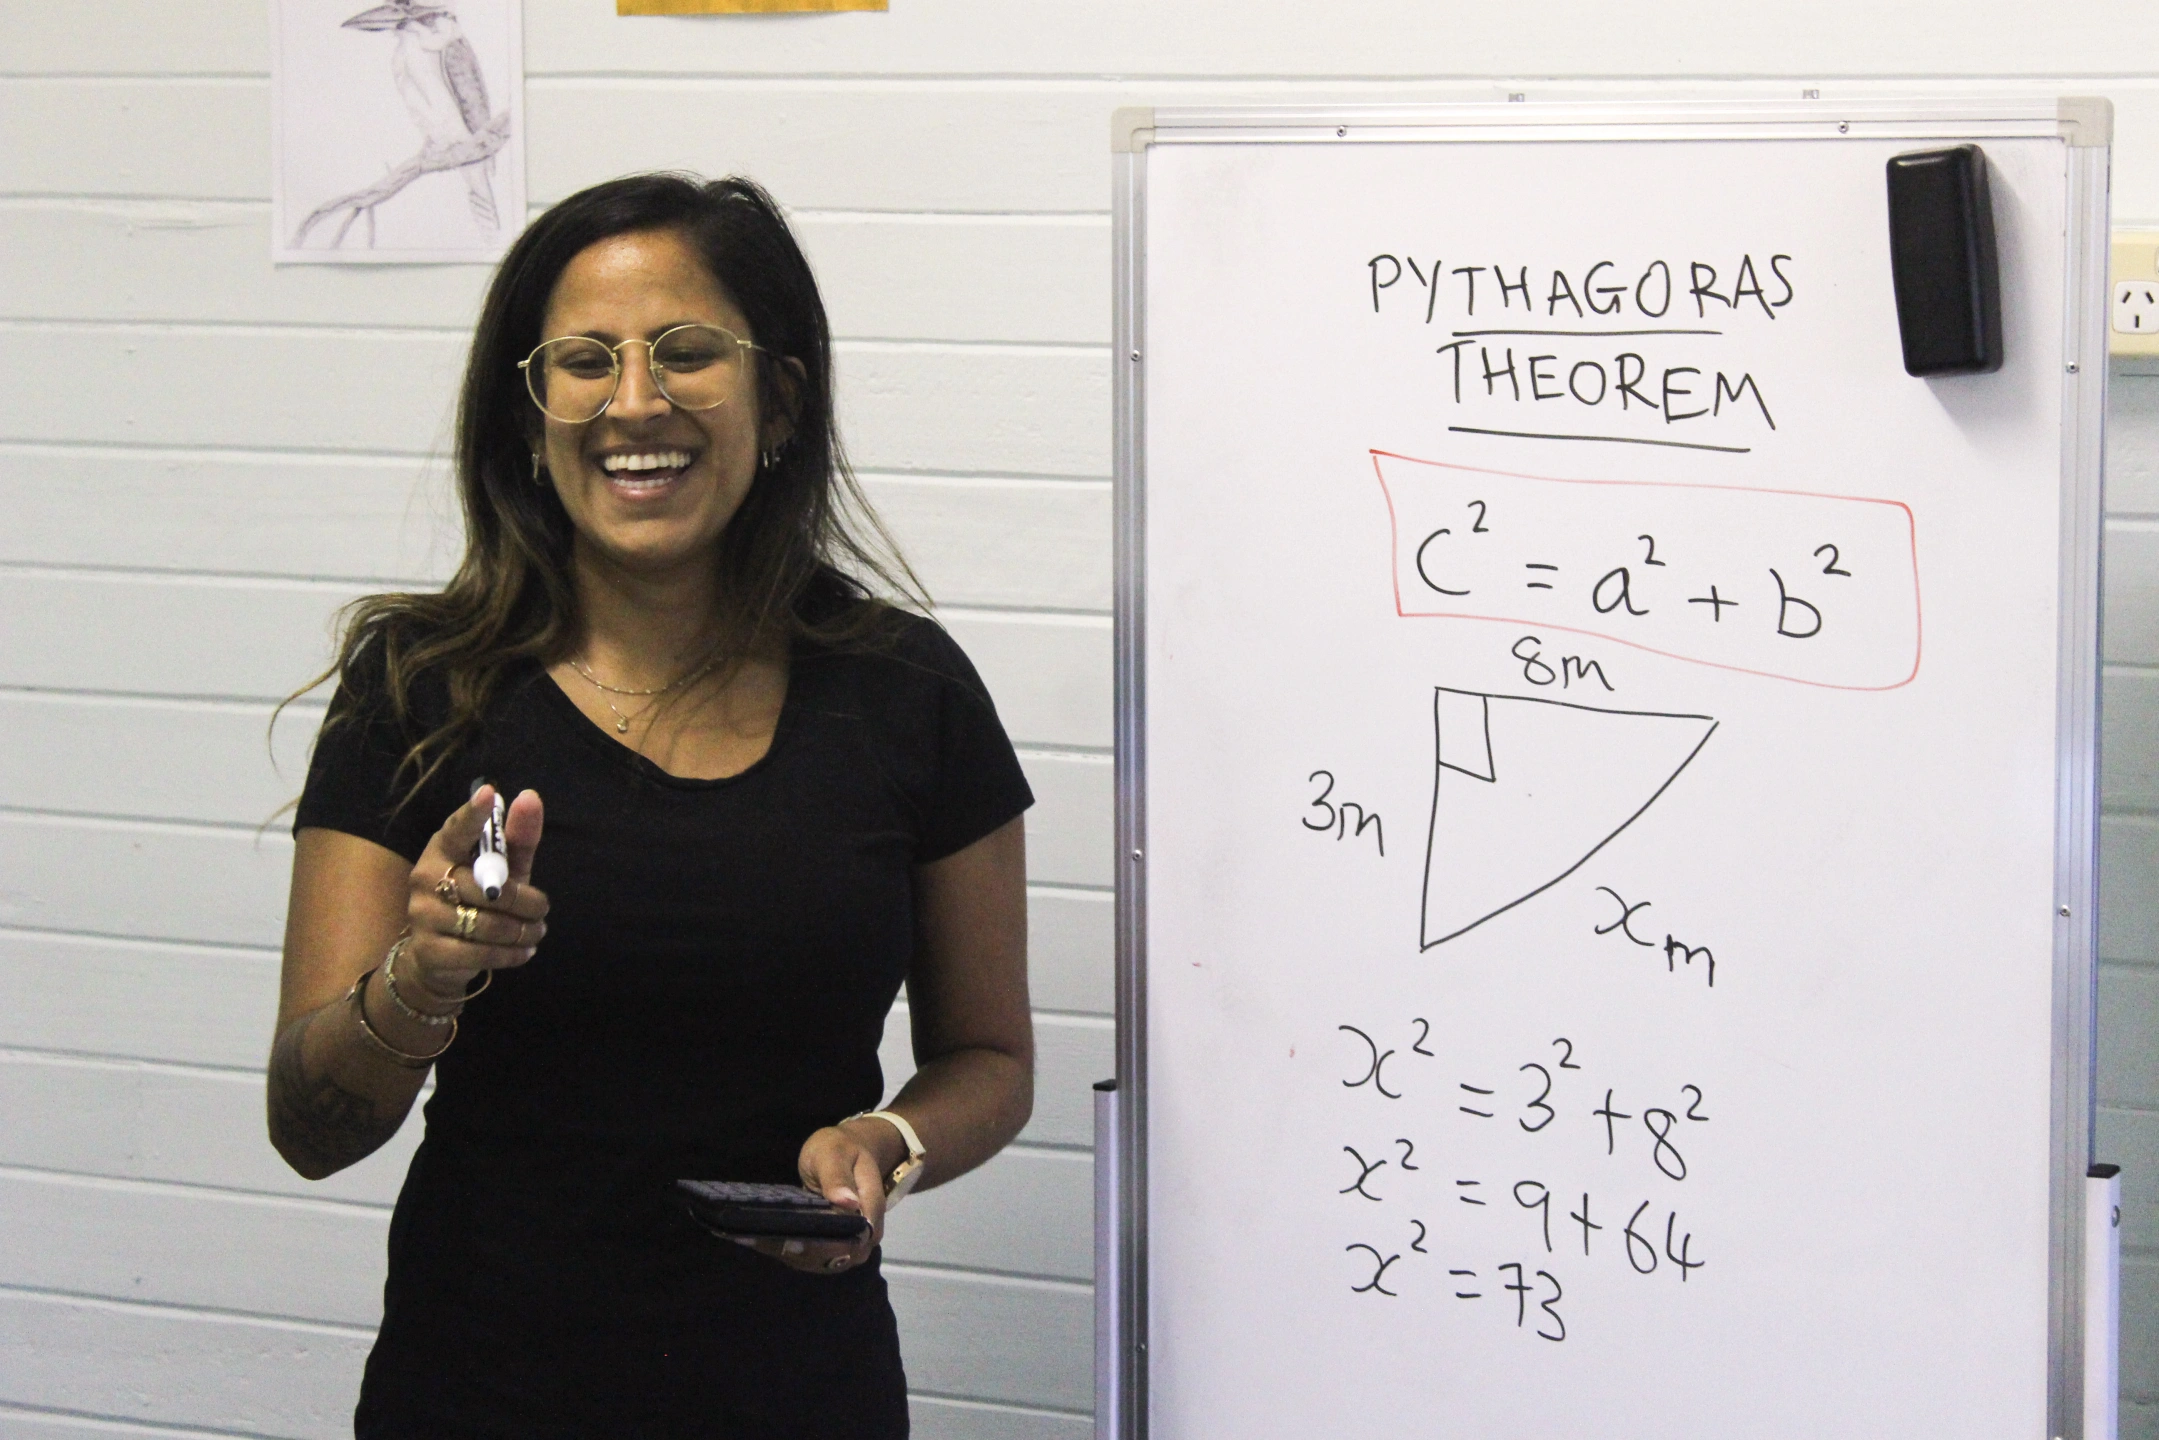 PYTHAGORAS
THEOREM
c² = a² + b²
8m
3m
x m
x² = 3² + 8²
x² = 9 + 64
x² = 73